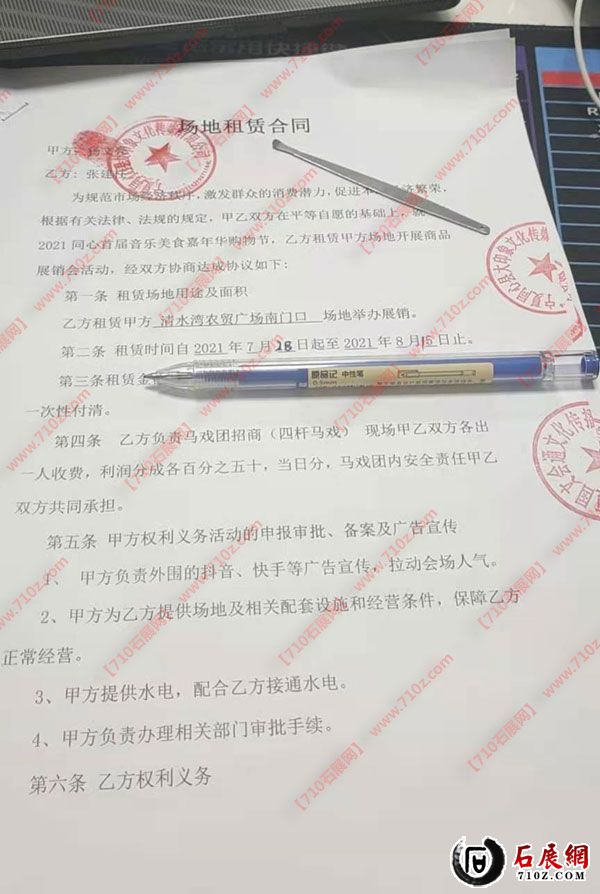 场地租赁合同
甲方：
乙方：张建
为规范市场经济秩序，激发群众的消费潜力，促进本 济繁荣，
根据有关法律、法规的规定，甲乙双方在平等自愿的基础上，就
2021 同心首届音乐美食嘉年华购物节，乙方租赁甲方场地开展商品
展销会活动，经双方协商达成协议如下：
第一条 租赁场地用途及面积
乙方租赁甲方 清水湾农贸广场南门口 场地举办展销。
第二条 租赁时间自 2021 年 7 月 18 日起至 2021 年 8 月 5 日止。
第三条租赁金
原品记 中性笔
0.5mm
一次性付清。
第四条 乙方负责马戏团招商（四杆马戏） 现场甲乙双方各出
一人收费，利润分成各百分之五十，当日分，马戏团内安全责任甲乙
双方共同承担。
第五条 甲方权利义务活动的申报审批、备案及广告宣传
1、 甲方负责外围的抖音、快手等广告宣传，拉动会场人气。
2、甲方为乙方提供场地及相关配套设施和经营条件，保障乙方
正常经营。
3、甲方提供水电，配合乙方接通水电。
4、甲方负责办理相关部门审批手续。
第六条 乙方权利义务
宁夏同心县大印象文化传
【710石展网】 www.710z.com
石展網
710Z.COM